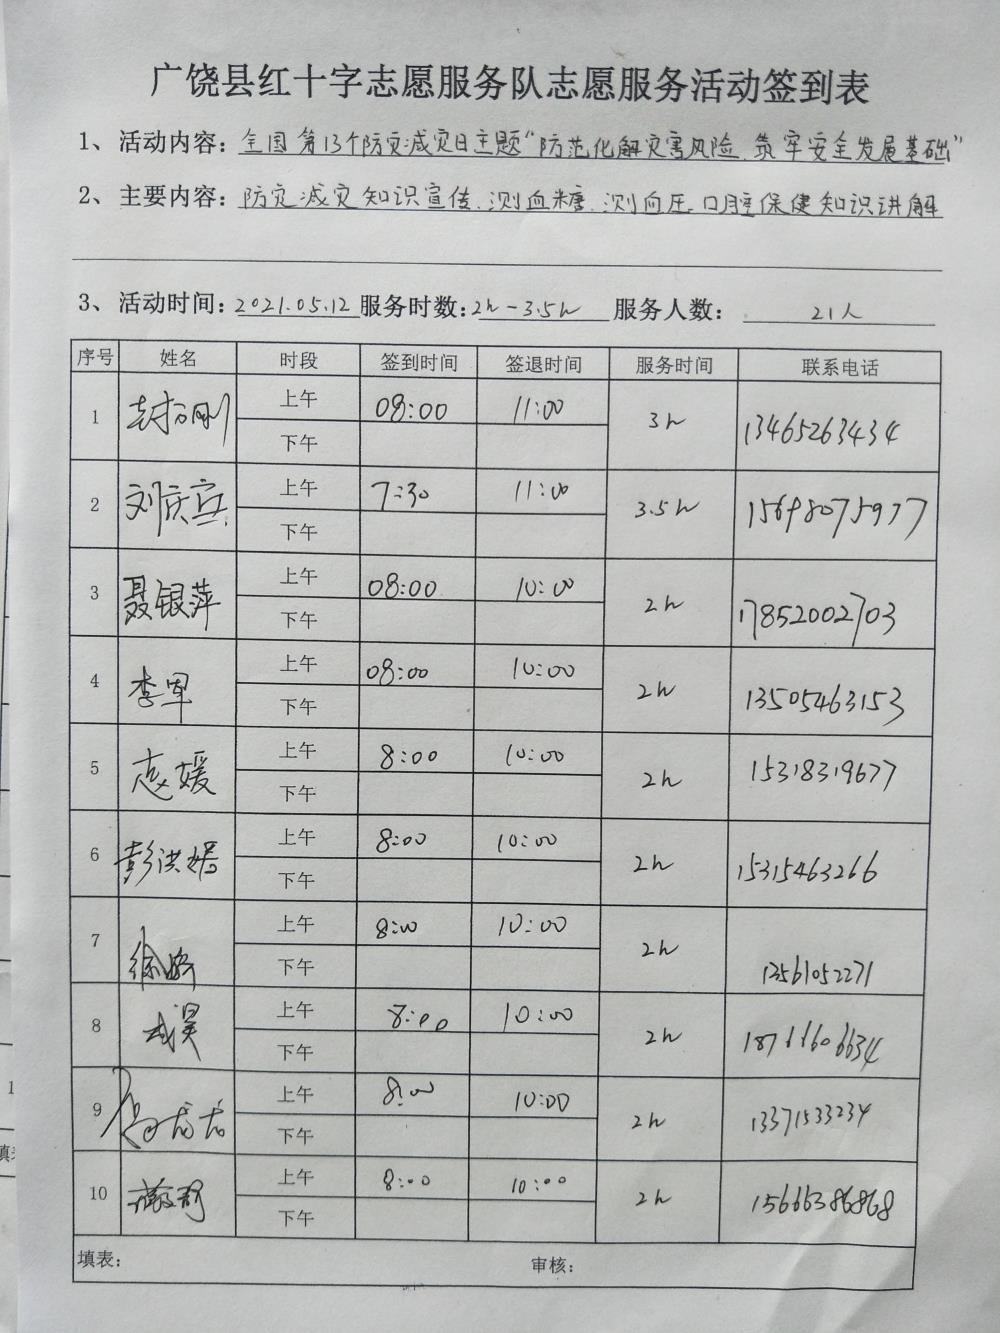 广饶县红十字志愿服务队志愿服务活动签到表
1、活动内容：全国第13个防灾减灾日主题“防范化解灾害风险、筑牢安全发展基础”
2、主要内容：防灾减灾知识宣传、测血糖、测血压、口腔保健知识讲解
3、活动时间：2021.05.12 服务时数：2h-3.5h 服务人数： 21人
序号 姓名 时段 签到时间 签退时间 服务时间 联系电话
1 上午 08:00 11:00 3h 13465263434
下午
2 刘庆宾 上午 7:30 11:00 3.5h 15698075977
下午
3 聂银萍 上午 08:00 10:00 2h 17852002703
下午
4 李军 上午 08:00 10:00 2h 13505463153
下午
5 媛 上午 8:00 10:00 2h 15318319677
下午
6 彭洪娟 上午 8:00 10:00 2h 15315463266
下午
7 徐 上午 8:00 10:00 2h 13561052271
下午
8 成昊 上午 8:00 10:00 2h 18766606634
下午
9 上午 8:00 10:00 2h 13371533234
下午
10 上午 8:00 10:00 2h 15666386868
下午
填表： 审核：